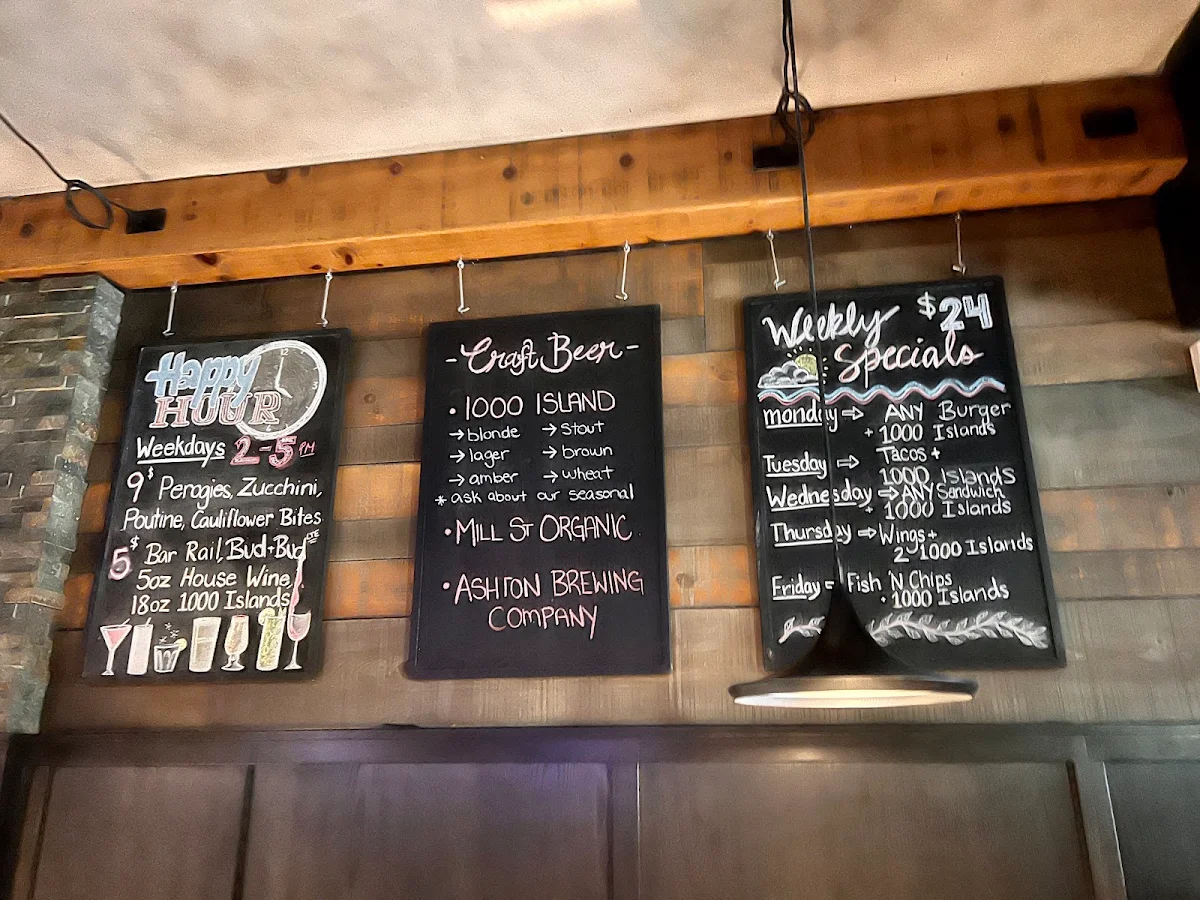 Happy
HOUR
Weekdays 2-5PM
9$ Perogies, Zucchini,
Poutine, Cauliflower Bites
5$ Bar Rail, Bud+Bud LTE
5oz House Wine,
18oz 1000 Islands
-Craft Beer-
• 1000 ISLAND
→ blonde → Stout
→ lager → brown
→ amber → wheat
* ask about our seasonal
• MILL ST ORGANIC
• ASHTON BREWING
COMPANY
Weekly $24
Specials
monday ⇒ ANY Burger
+ 1000 Islands
Tuesday ⇒ Tacos +
1000 Islands
Wednesday ⇒ ANY Sandwich
+ 1000 Islands
Thursday ⇒ Wings +
2 1000 Islands
Friday = Fish 'N Chips
+ 1000 Islands